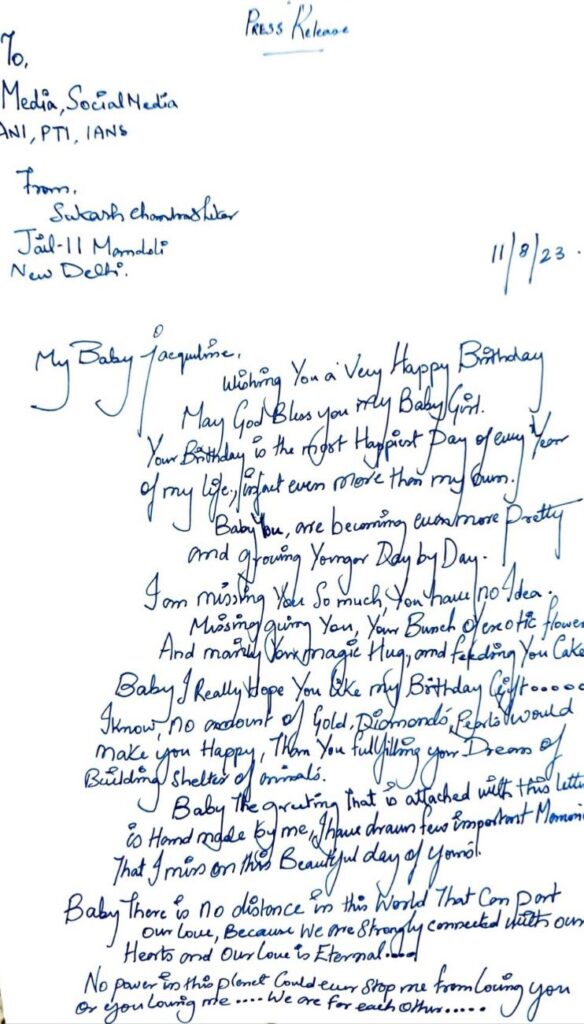 PRESS Release
To,
Media, Social Media
ANI, PTI, IANS
From,
Sukash Chandrashekar
Jail-11 Mandoli
New Delhi.
11/8/23.
My Baby Jacqueline,
Wishing You a Very Happy Birthday
May God Bless you My Baby Girl.
Your Birthday is the most Happiest Day of every Year
of my life, infact even more than my own.
Baby You, are becoming even more Pretty
and growing Younger Day by Day.
I am missing You So much, You have no Idea.
Missing giving You, Your Bunch of exotic flower
And mainly Your magic Hug, and feeding You Cake
Baby I Really Hope You like my Birthday Gift.....
I know, no amount of Gold, Diamonds, Pearls would
make you Happy, Than You fulfilling your Dream of
Building Shelter of animals.
Baby The greeting That is attached with this lette
is Hand made by me, I have drawn few important Memori
That I miss on this Beautiful day of yours.
Baby There is no distance in this World That Can part
our Love, Because We are Strongly connected with our
Hearts and Our Love is Eternal....
No power in this planet Could ever Stop me from Loving you
Or you Loving me .... We are for each other.....